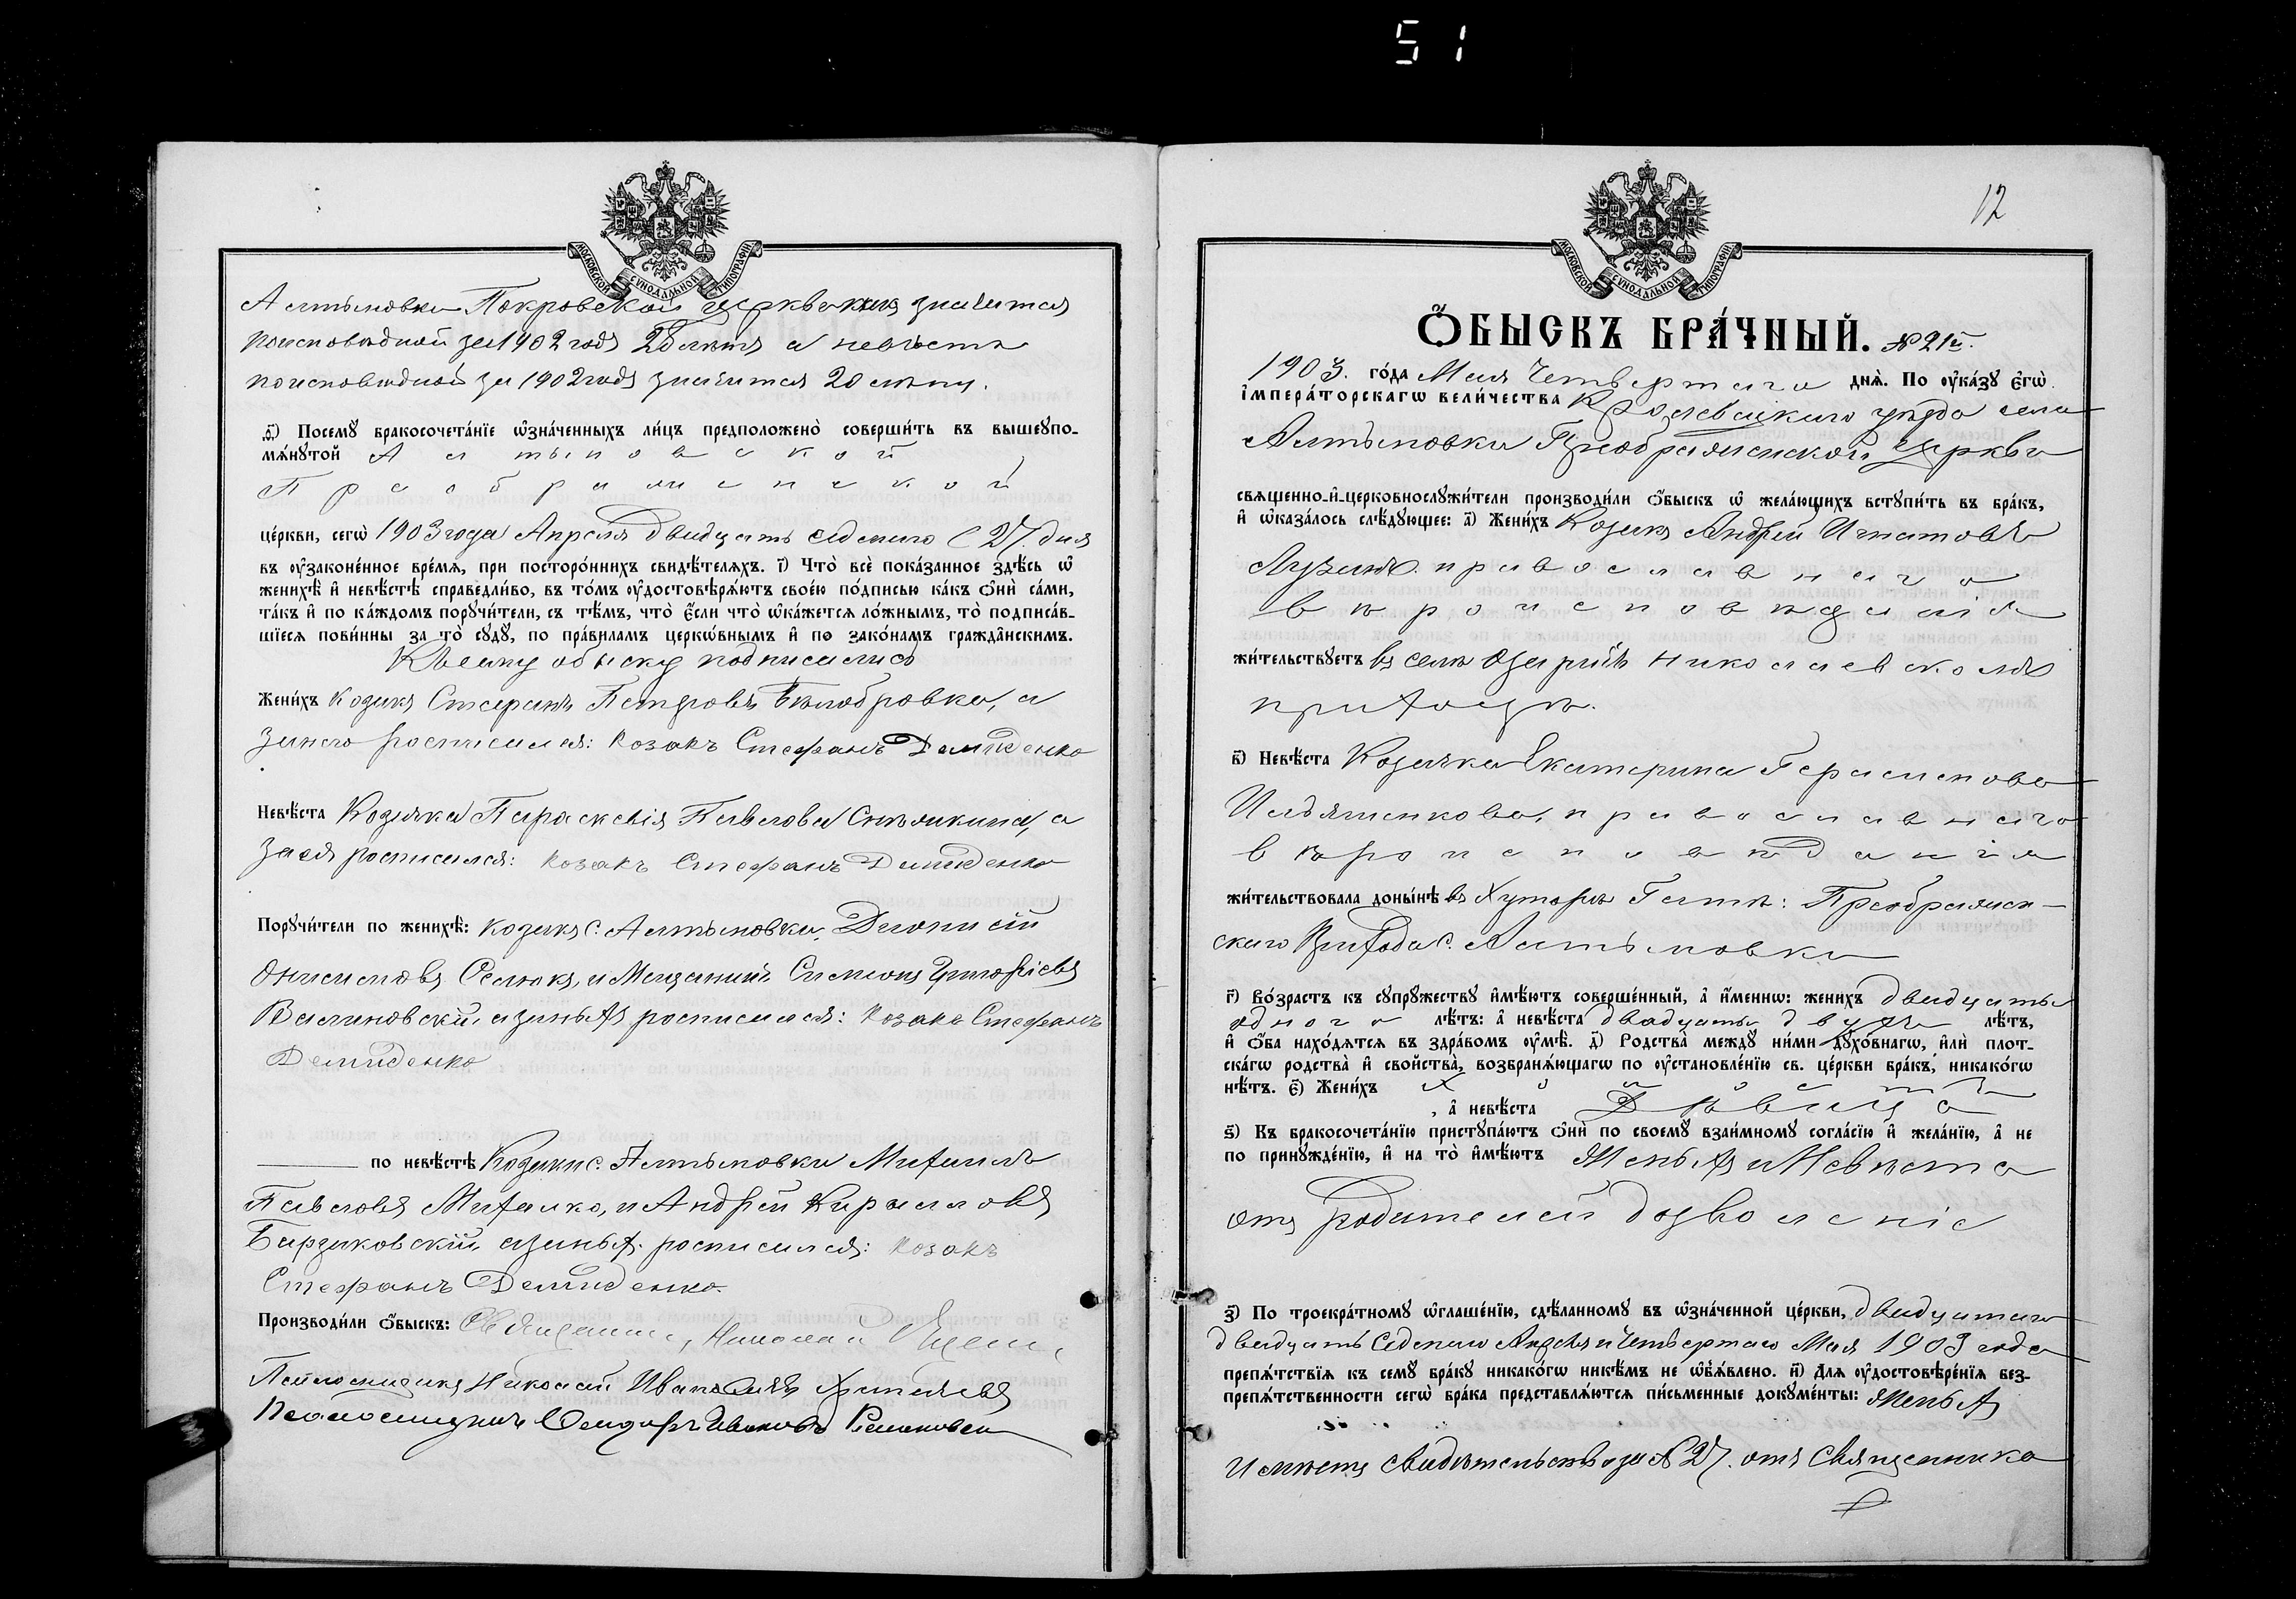 51
МОСКОВСКОЙ СѴНОДАЛЬНОЙ ТИПОГРАФІИ
Алтыновки Покровской церкви какъ значится
поисповѣдной за 1902 годъ лѣтъ а невѣста
поисповѣдной за 1902 годъ значится 20 лѣтъ.
Посемꙋ̀ бракосочета́нїе ѡ҆зна́ченныхъ ли́цъ предположено̀ соверши́ть въ вышеꙋпо-
мѧ́нꙋтой Алтыновской
Преображенской
це́ркви, сегѡ̀ 1903 года Апрѣля двадцать седьмого 27. дня
въ ᲂу҆законе́нное вре́мѧ, при посторо́ннихъ свидѣ́телѧхъ. і҃) Что̀ всѐ пока́занное здѣ́сь ѡ҆
женихѣ̀ и҆ невѣ́стѣ справедли́во, въ то́мъ ᲂу҆достовѣрѧ́ютъ свое́ю по́дписью ка́къ ѻ҆нѝ са́ми,
та́къ и҆ по ка́ждомъ порꙋчи́тели, съ тѣ́мъ, что̀ є҆́сли что̀ ѡ҆ка́жется ло́жнымъ, то̀ подписа́в-
шїеся пови́нны за то̀ сꙋдꙋ̀, по пра́виламъ церкѡ́внымъ и҆ по зако́намъ гражда̂нскимъ.
Къ сему обыску подписались
Жени́хъ козакъ Стефанъ Петровъ Бѣлобровка, а
за него росписался: козакъ Стефанъ Демиденко
Невѣ́ста Козачка Параскевія Павлова а
за ея росписался: козакъ Стефанъ Демиденко
Порꙋчи́тели по женихѣ̀: козакъ с. Алтыновки, Діонисій
Онисимовъ и Мещанинъ Симеонъ
росписался: козакъ Стефанъ
Демиденко
по невѣ́стѣ Козаки с. Алтыновки Михаилъ
Павловъ Михалко, и Андрей Кириловъ
росписался: козакъ
Стефанъ Демиденко.
Производи́ли ѻ҆́быскъ: Священникъ, Николай
Псаломщикъ Николай
Псаломщикъ
12
МОСКОВСКОЙ СѴНОДАЛЬНОЙ ТИПОГРАФІИ
Ѻ҆́БЫСКЪ БРА́ЧНЫЙ. № 21й.
1903. го́да Мая Четвертаго днѧ̀. По ᲂу҆ка́зꙋ є҆гѡ̀
і҆мпера́торскагѡ вели́чества Кролевецкаго уѣзда села
Алтыновки Преображенской церкви
свѧще́нно-и҆-церковнослꙋжи́тели производи́ли ѻ҆́быскъ ѡ҆ жела́ющихъ встꙋпи́ть въ бра́къ,
и҆ ѡ҆каза́лось слѣ́дꙋющее: а҃) Жени́хъ Козакъ Андрей Игнатовъ
Лузанъ православнаго
вѣроисповѣданія
жи́тельствꙋетъ въ селѣ Озарицѣ Николаевскомъ
приходѣ.
в҃) Невѣ́ста Козачка Екатерина Герасимова
Ильяшенкова, православнаго
вѣроисповѣданія
жи́тельствовала доны́нѣ въ Хуторѣ Преображен-
скаго Прихода с. Алтыновки
г҃) Во́зрастъ къ сꙋпрꙋ́жествꙋ и҆мѣ́ютъ соверше́нный, а҆ и҆́меннѡ: жени́хъ двадцать
одного лѣ́тъ: а҆ невѣ́ста двадцать двухъ лѣ́тъ,
и҆ ѻ҆́ба нахо́дѧтся въ здра́вомъ ᲂу҆мѣ̀. д҃) Родства̀ междꙋ̀ ни́ми дꙋхо́внагѡ, и҆лѝ плот-
ска́гѡ родства̀ и҆ свойства̀, возбранѧ́ющагѡ по ᲂу҆становле́нїю св. це́ркви бра́къ, никако́гѡ
нѣ́тъ. є҃) Жени́хъ Холостъ
, а҆ невѣ́ста Дѣвица
ѕ҃) Къ бракосочета́нїю пристꙋпа́ютъ ѻ҆нѝ по своемꙋ̀ взаи́мномꙋ согла́сїю и҆ жела́нїю, а҆ не
по принꙋжде́нїю, и҆ на то̀ и҆мѣ́ютъ Женихъ и Невѣста
отъ родителей дозволеніе
з҃) По троекра́тномꙋ ѡ҆глаше́нїю, сдѣ́ланномꙋ въ ѡ҆зна́ченной це́ркви, двадцатаго
двадцать седьмого Апрѣля и четвертаго Мая 1903 года
препѧ́тствїѧ къ семꙋ̀ бра́кꙋ никако́гѡ никѣ́мъ не ѡ҆б̾ѧ́влено. и҃) Длѧ ᲂу҆достовѣре́нїѧ без-
препѧ́тственности сегѡ̀ бра́ка представлѧ́ются пи́сьменные докꙋме́нты: Женихъ
имѣетъ свидѣтельство за № 27. отъ Священника